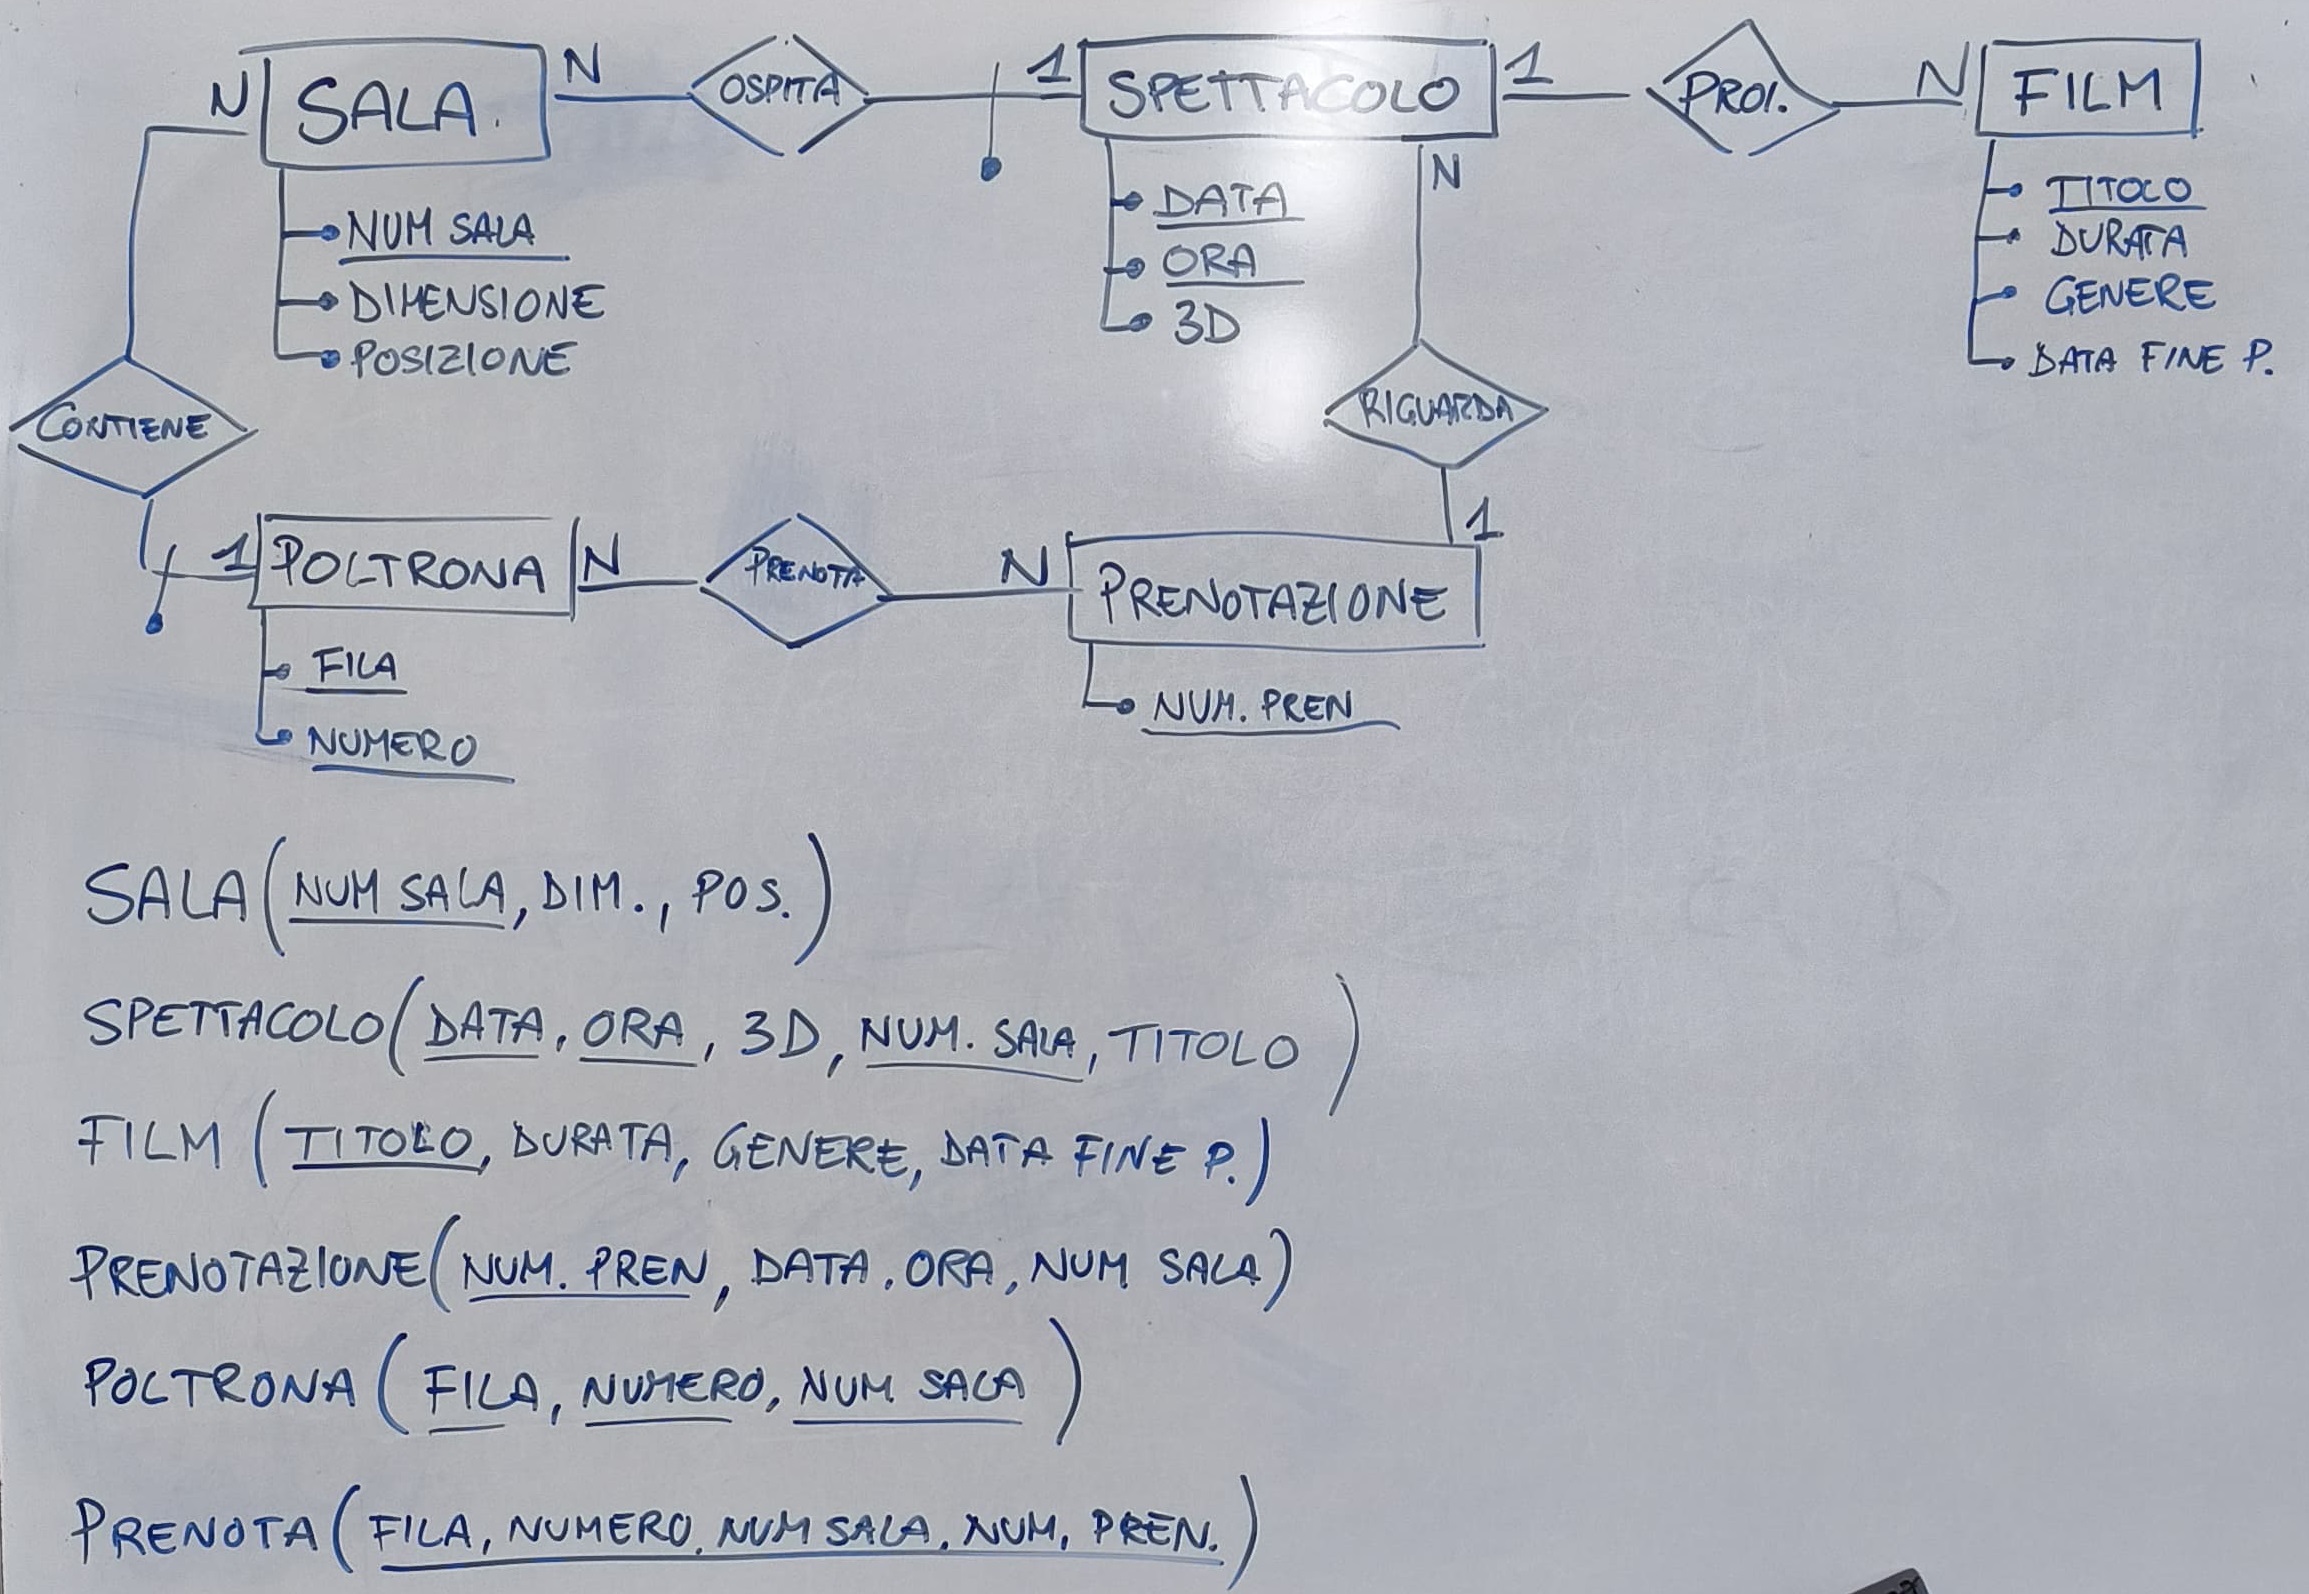 N SALA. N OSPITA 1 SPETTACOLO 1 PROI. N FILM
NUM SALA
DIMENSIONE
POSIZIONE
DATA
ORA
3D
N
TITOLO
DURATA
GENERE
DATA FINE P.
CONTIENE
RIGUARDA
1
1 POLTRONA N PRENOTA N PRENOTAZIONE
FILA
NUMERO
NUM. PREN
SALA (NUM SALA, DIM., POS.)
SPETTACOLO (DATA, ORA, 3D, NUM. SALA, TITOLO)
FILM (TITOLO, DURATA, GENERE, DATA FINE P.)
PRENOTAZIONE (NUM. PREN, DATA, ORA, NUM SALA)
POLTRONA (FILA, NUMERO, NUM SALA)
PRENOTA (FILA, NUMERO, NUM SALA, NUM. PREN.)